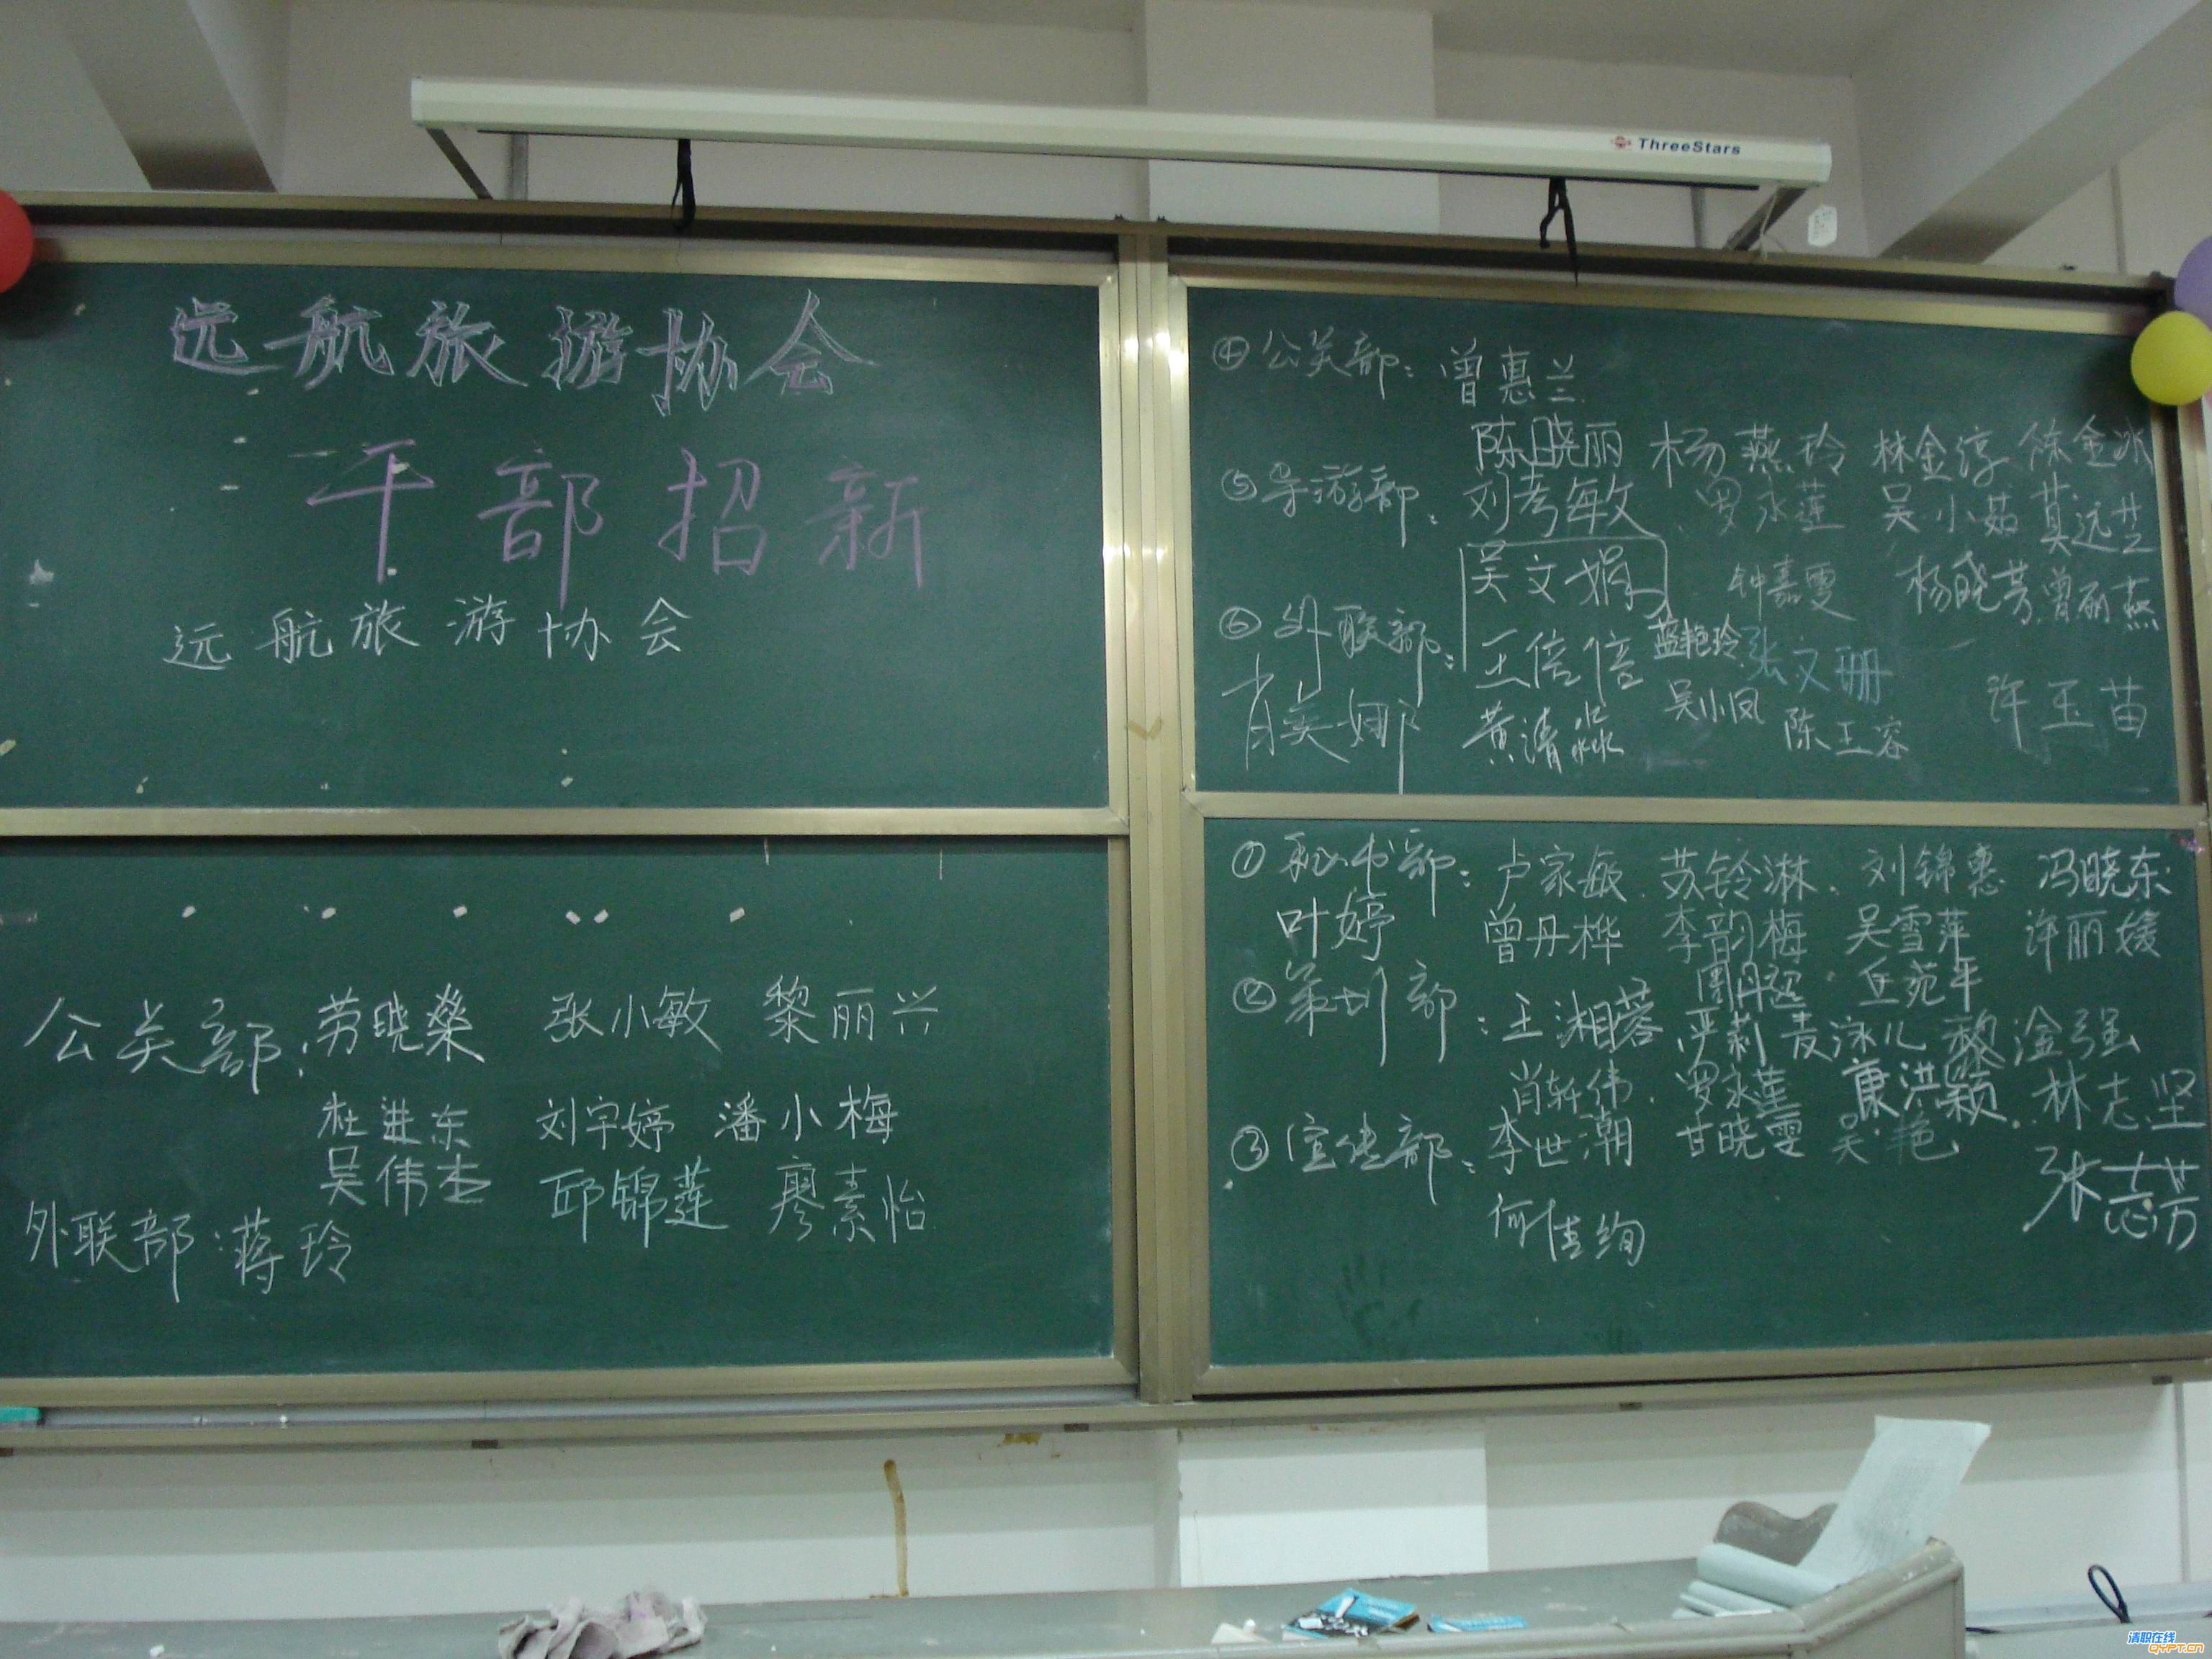 ThreeStars
远航旅游协会
干部招新
远航旅游协会
④公关部：曾惠兰
陈晓丽 杨燕玲 林金淳 陈金冰
⑤导游部：刘考敏 罗永莲 吴小茹 莫远芝
吴文娟 钟嘉雯 杨晓芳 曾丽燕
⑥外联部：王倍倍 蓝艳玲 张文珊
肖美娜 黄清淼 吴小凤 陈玉容 许玉苗
公关部：劳晓燊 张小敏 黎丽兴
杜进东 刘宇婷 潘小梅
吴伟杰 邱锦莲 廖素怡
外联部：蒋玲
①秘书部：卢家敏 苏铃淋 刘锦惠 冯晓东
叶婷 曾丹桦 李韵梅 吴雪萍 许丽媛
周丹 丘苑平
②策划部：王湘蓉 严莉 麦泳儿 黎淦强
肖轩伟 罗永莲 康洪颖 林志坚
③宣传部：李世潮 甘晓雯 吴艳
何佳绚 张志芳
清职在线
QYPT.CN